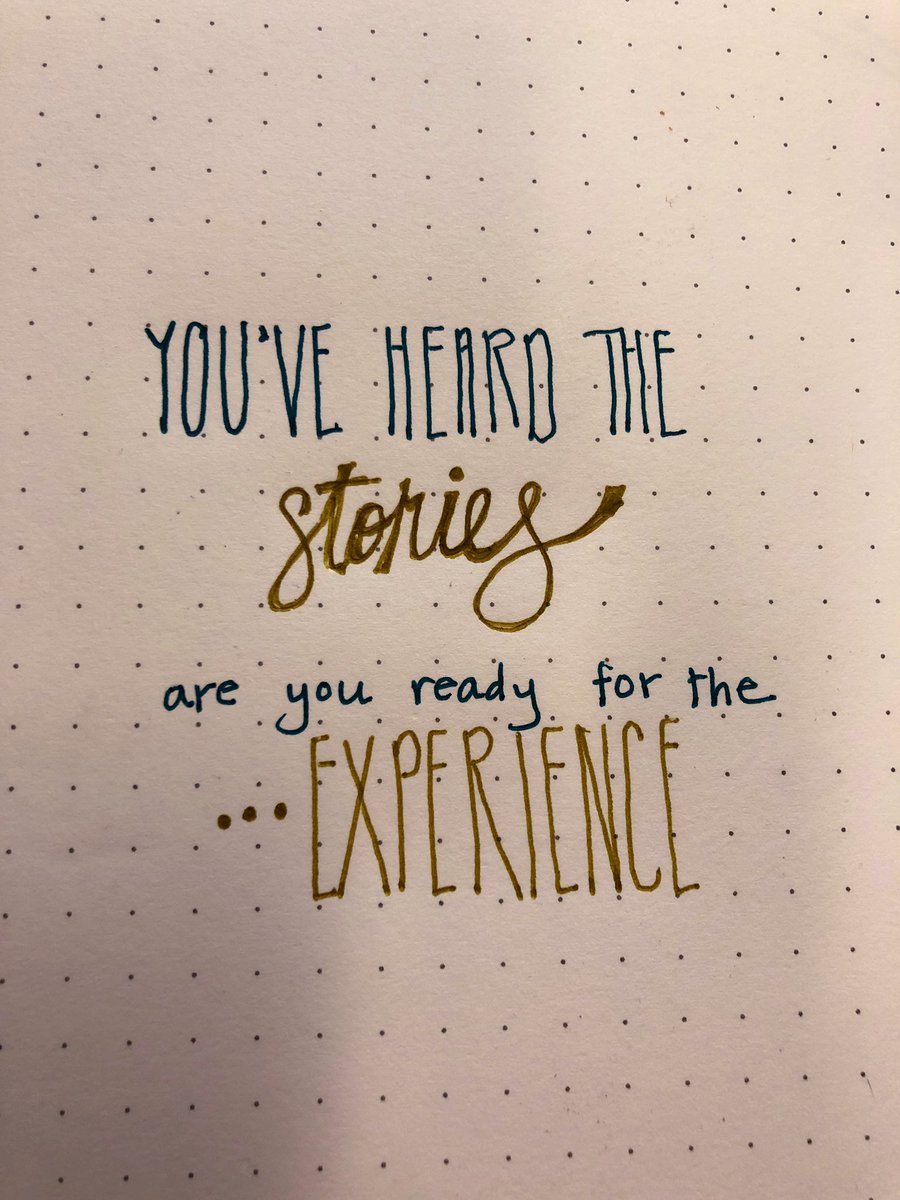 YOU'VE HEARD THE
stories
are you ready for the
...EXPERIENCE